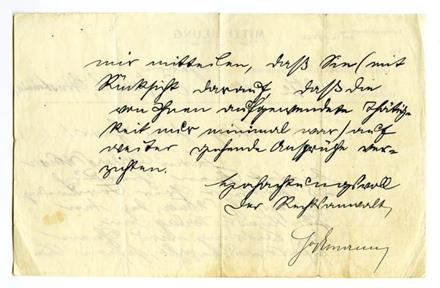 mir mitteilen, daß Sie (mit
Rücksicht darauf, daß die
von Ihnen aufgewendete Thätig-
keit nur minimal war) auf
weiter gehende Ansprüche ver-
zichten.
Hochachtungsvoll
Der Rechtsanwalt